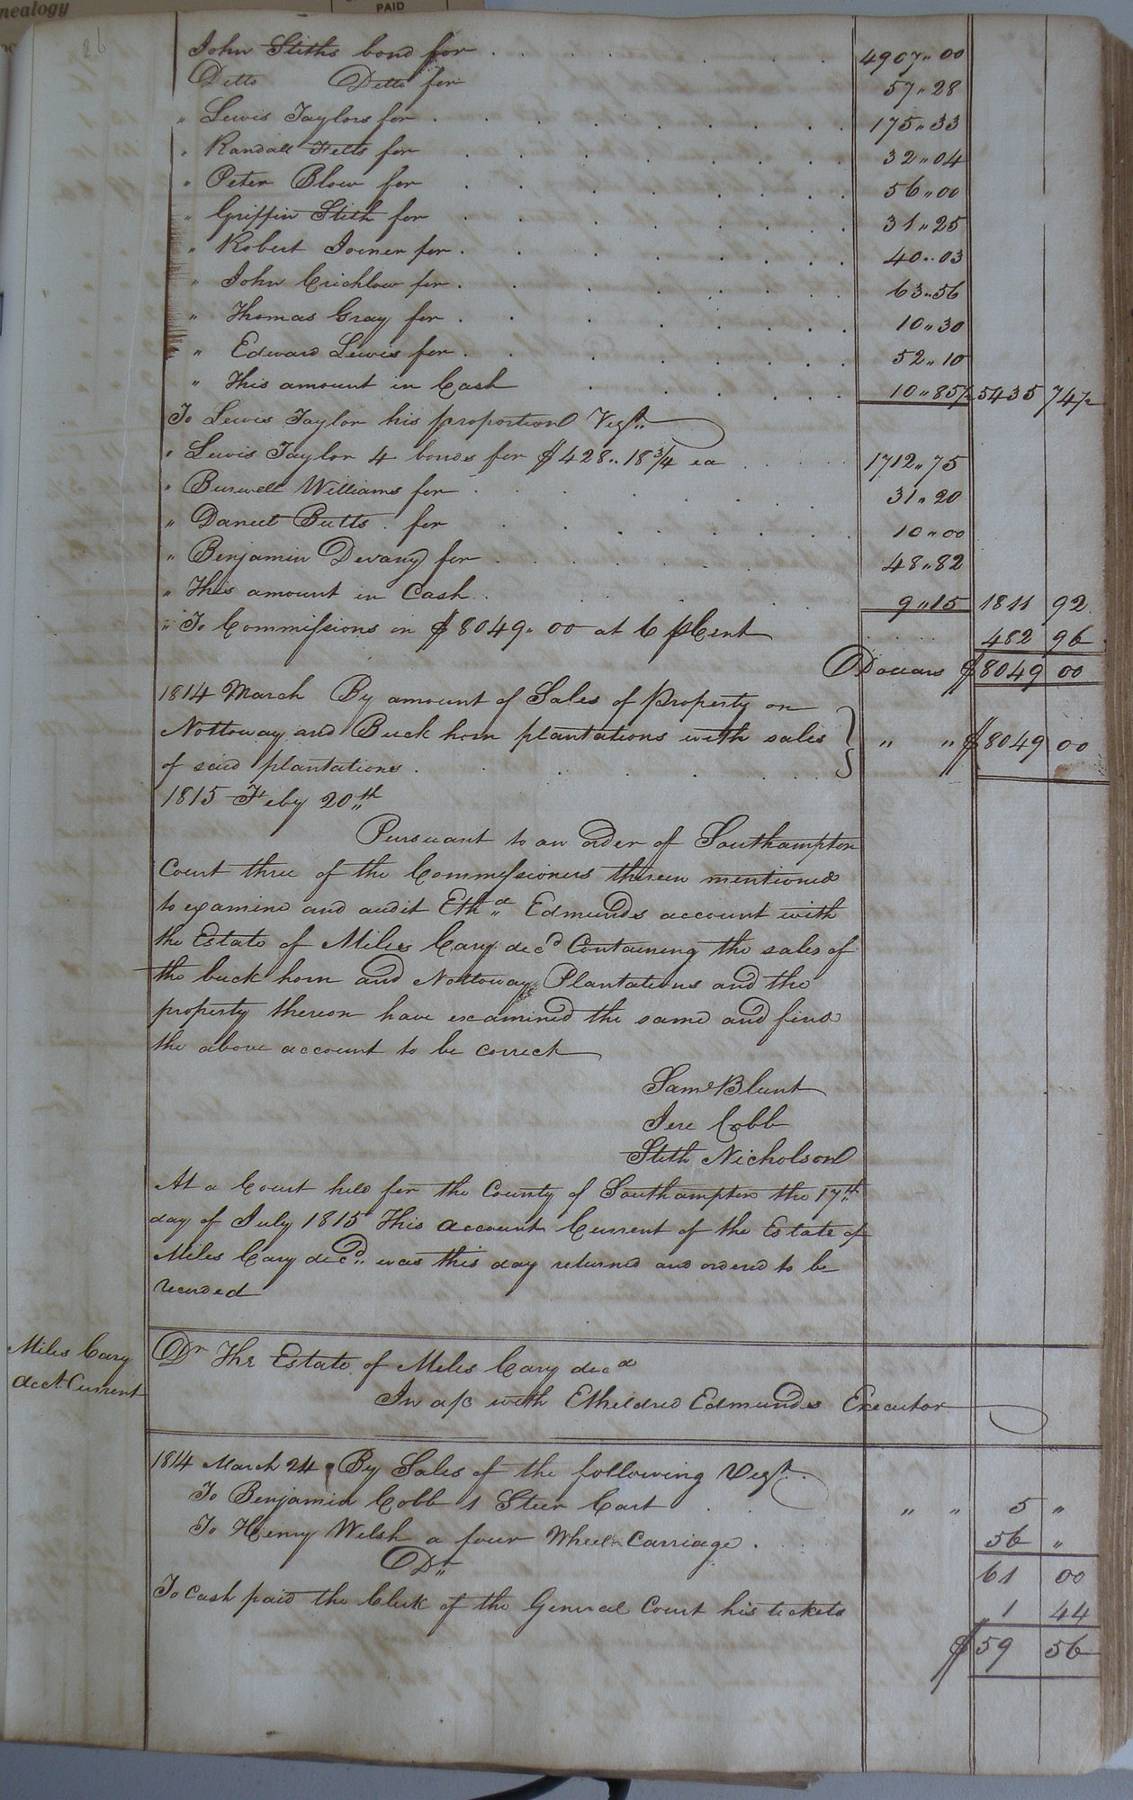 nealogy
PAID
26
John Stiths bond for . . . . . 4907 " 00
Ditto Ditto for 57 " 28
" Lewis Taylors for . . . . . 175 " 33
" Randall Felts for . . . . . 32 " 04
" Peter Blow for . . . . . 56 " 00
" Griffin Stith for . . . . . 31 " 25
" Robert Joiner for . . . . . 40 " 03
" John Crichlow for . . . . . 63 " 56
" Thomas Gray for . . . . . 10 " 30
" Edward Lewis for . . . . . 52 " 10
" This amount in Cash . . . . . 10 " 85½ 5435 74½
To Lewis Taylor his proportion Vizt
" Lewis Taylor 4 bonds for $428 " 18¾ ea . . . 1712 " 75
" Burwell Williams for . . . . . 31 " 20
" Daniel Butts for . . . . . 10 " 00
" Benjamin Devany for . . . . . 48 " 82
" This amount in Cash . . . . . 9 " 15 1811 92
" To Commissions on $8049 " 00 at 6 pCent 482 96
Dollars $8049 00
1814 March By amount of Sales of Property on
Nottoway and Buck horn plantations with sales } " " $8049 00
of said plantations . . . . .
1815 Feby 20th
Pursuant to an order of Southampton
Court three of the Commissioners therein mentioned
to examine and audit Ethd Edmunds account with
the Estate of Miles Cary decd Containing the sales of
the buck horn and Nottoway Plantations and the
property thereon have examined the same and find
the above account to be correct
Saml Blunt
Jere Cobb
Stith Nicholson
At a Court held for the County of Southampton the 17th
day of July 1815 This account Current of the Estate of
Miles Cary decd was this day returned and ordered to be
recorded
Miles Cary
Acct Current
Dr The Estate of Miles Cary decd
In a/c with Etheldred Edmunds Executor
1814 March 24 By Sales of the following Vizt.
To Benjamin Cobb 1 Steer Cart . . " " 5 "
To Henry Welsh a four Wheel Carriage . 56 "
Dr 61 00
To Cash paid the Clerk of the General Court his tickets 1 44
$ 59 56